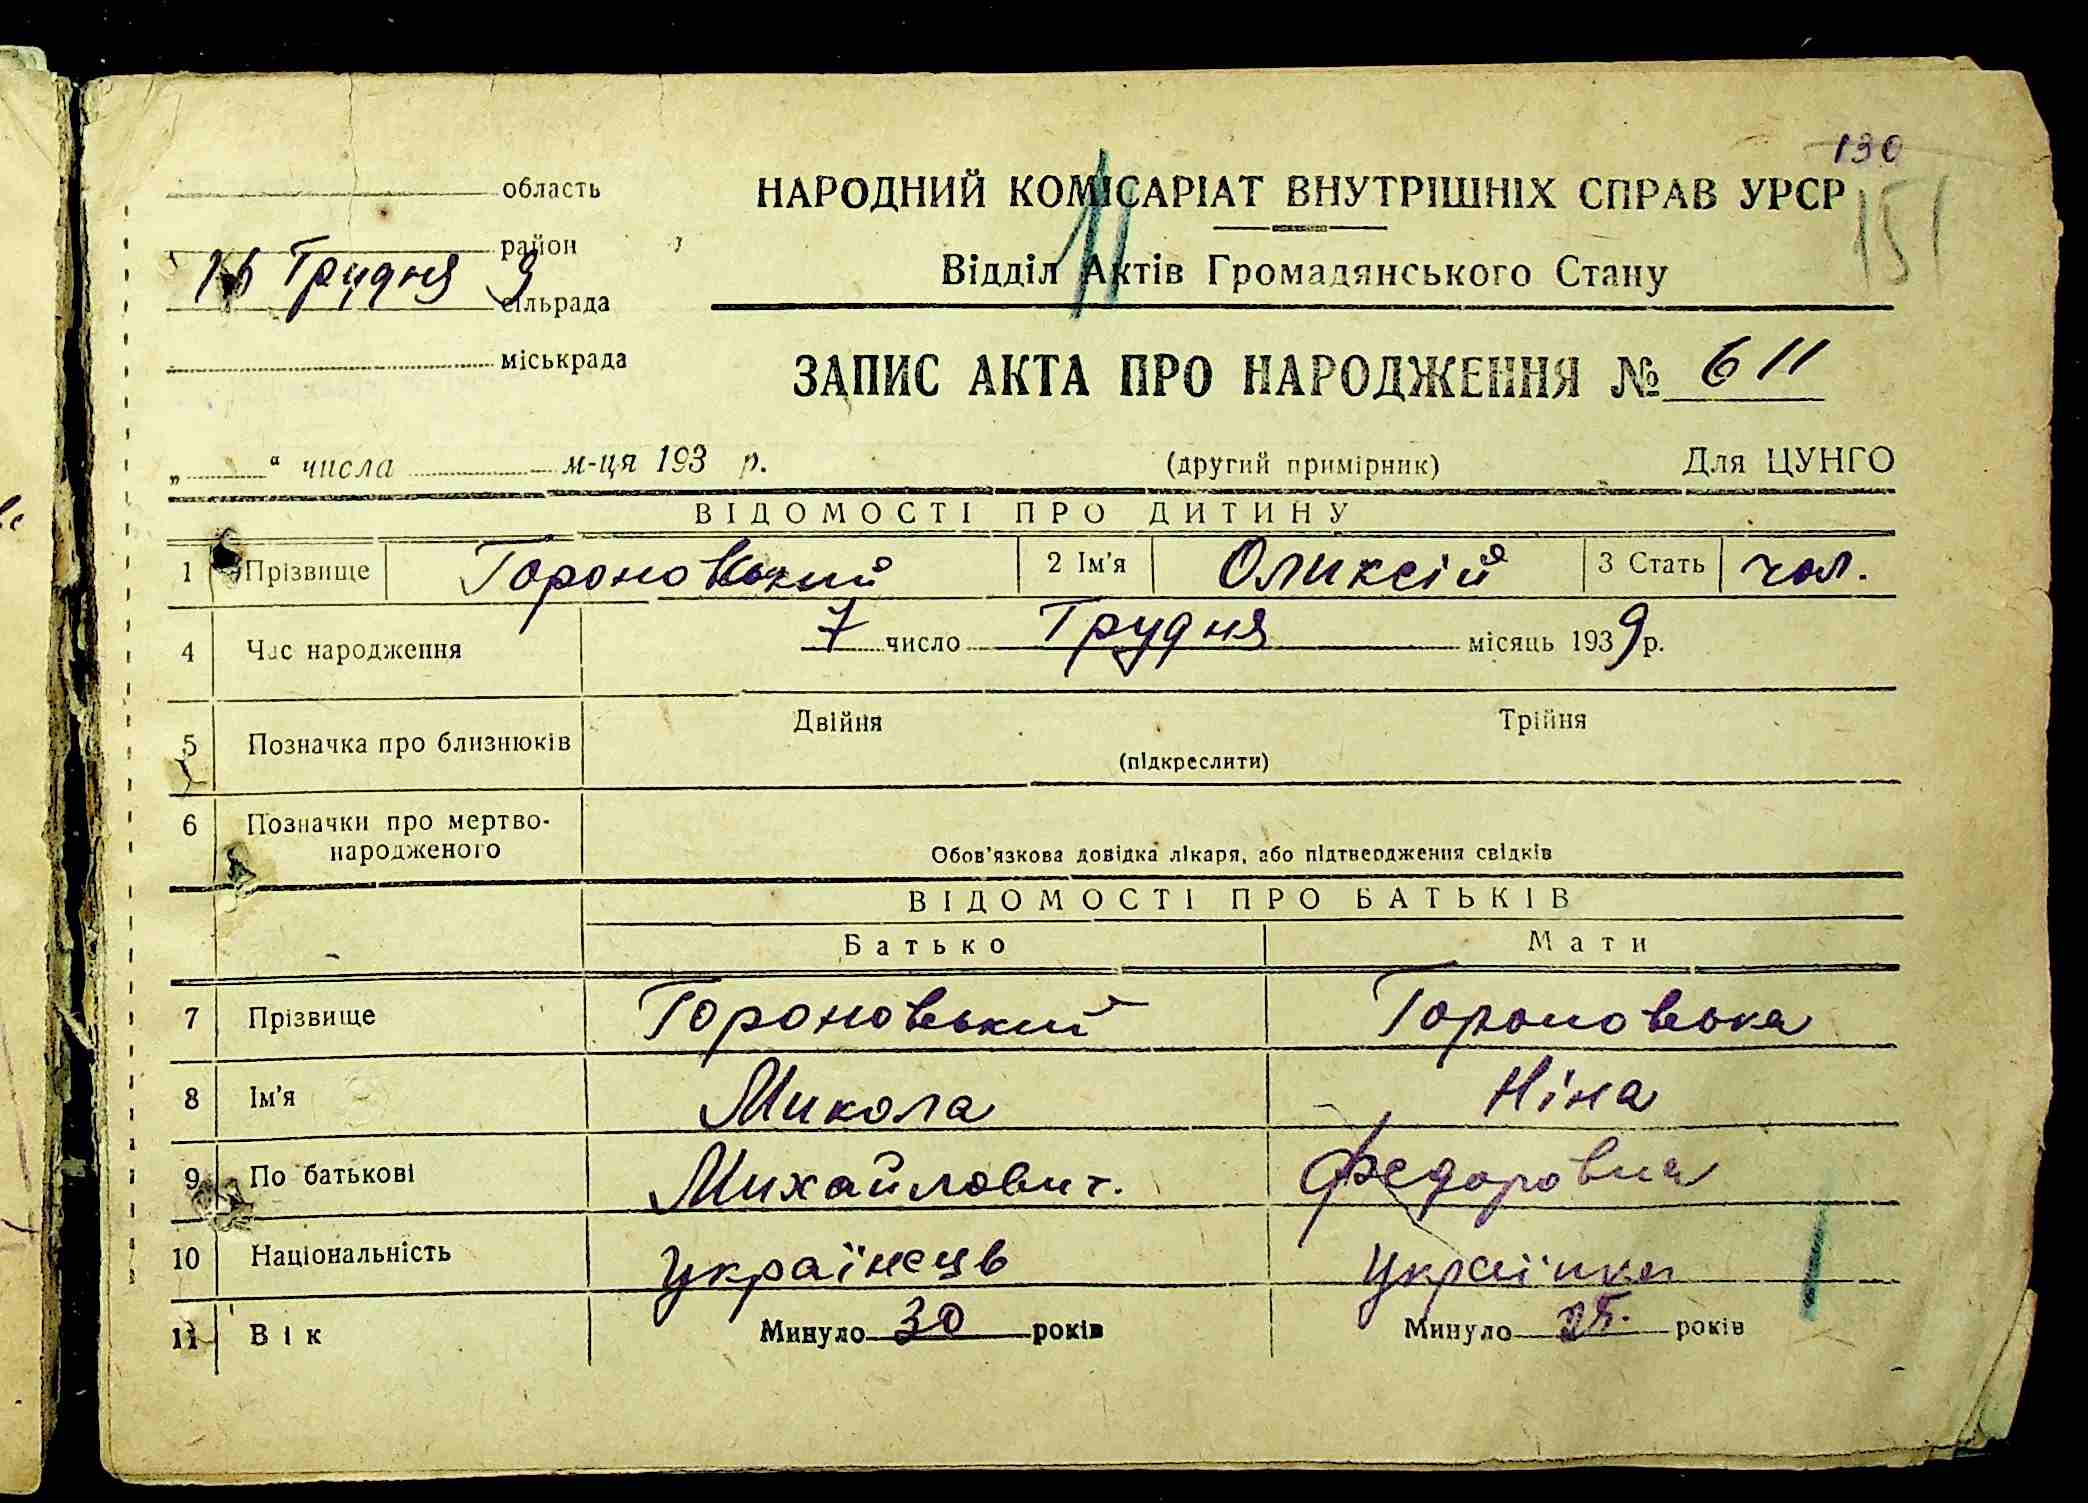 130
область
НАРОДНИЙ КОМІСАРІАТ ВНУТРІШНІХ СПРАВ УРСР
151
район
Відділ Актів Громадянського Стану
Грудня 9
сільрада
міськрада
ЗАПИС АКТА ПРО НАРОДЖЕННЯ № 611
„ “ числа м-ця 193 р. (другий примірник) Для ЦУНГО
ВІДОМОСТІ ПРО ДИТИНУ
1 Прізвище Гороновський 2 Ім'я Оликсій 3 Стать чол.
4 Час народження 7 число Грудня місяць 1939 р.
5 Позначка про близнюків Двійня Трійня
(підкреслити)
6 Позначки про мертво-
народженого
Обов'язкова довідка лікаря, або підтвердження свідків
ВІДОМОСТІ ПРО БАТЬКІВ
Батько Мати
7 Прізвище Гороновський Гороновська
8 Ім'я Микола Ніна
9 По батькові Михайлович. Федоровна
10 Національність Українець Українка
11 Вік Минуло 30 років Минуло років